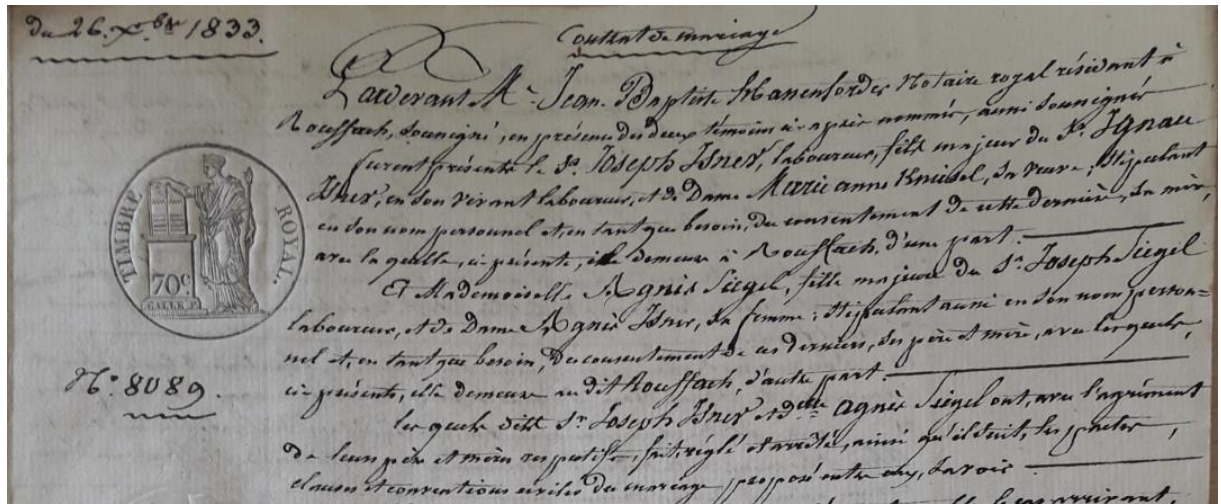 Du 26. Xbre 1833.
Contrat de mariage
Pardevant Me. Jean Baptiste notaire royal résidant à
Rouffach, soussigné, en présence des deux témoins ci-après nommés, aussi soussignés
furent présents le Sr. Joseph Isner, laboureur, fils majeur du Sr. Ignace
Isner, en son vivant laboureur, et de Dame Marie anne Kniebel, sa veuve; stipulant
en son nom personnel et, en tant que besoin, du consentement de cette dernière, sa mère,
avec la quelle, ci présente, il demeure à Rouffach, d'une part.
Et Mademoiselle Agnès Siegel, fille majeure du Sr. Joseph Siegel
laboureur, et de Dame Agnès Isner, sa femme; stipulant aussi en son nom person=
nel et, en tant que besoin, du consentement de ces derniers, ses père et mère, avec lesquels,
ci-présents, elle demeure au dit Rouffach, d'autre part.
les quels dits Sr. Joseph Isner et dlle Agnès Siegel ont, avec l'agrément
de leurs père et mères respectifs, fait, réglé et arrêté, ainsi qu'il suit, les pactes,
clauses et conventions civiles du mariage proposé entre eux, savoir
TIMBRE ROYAL.
70c
GALLE F.
No. 8089.